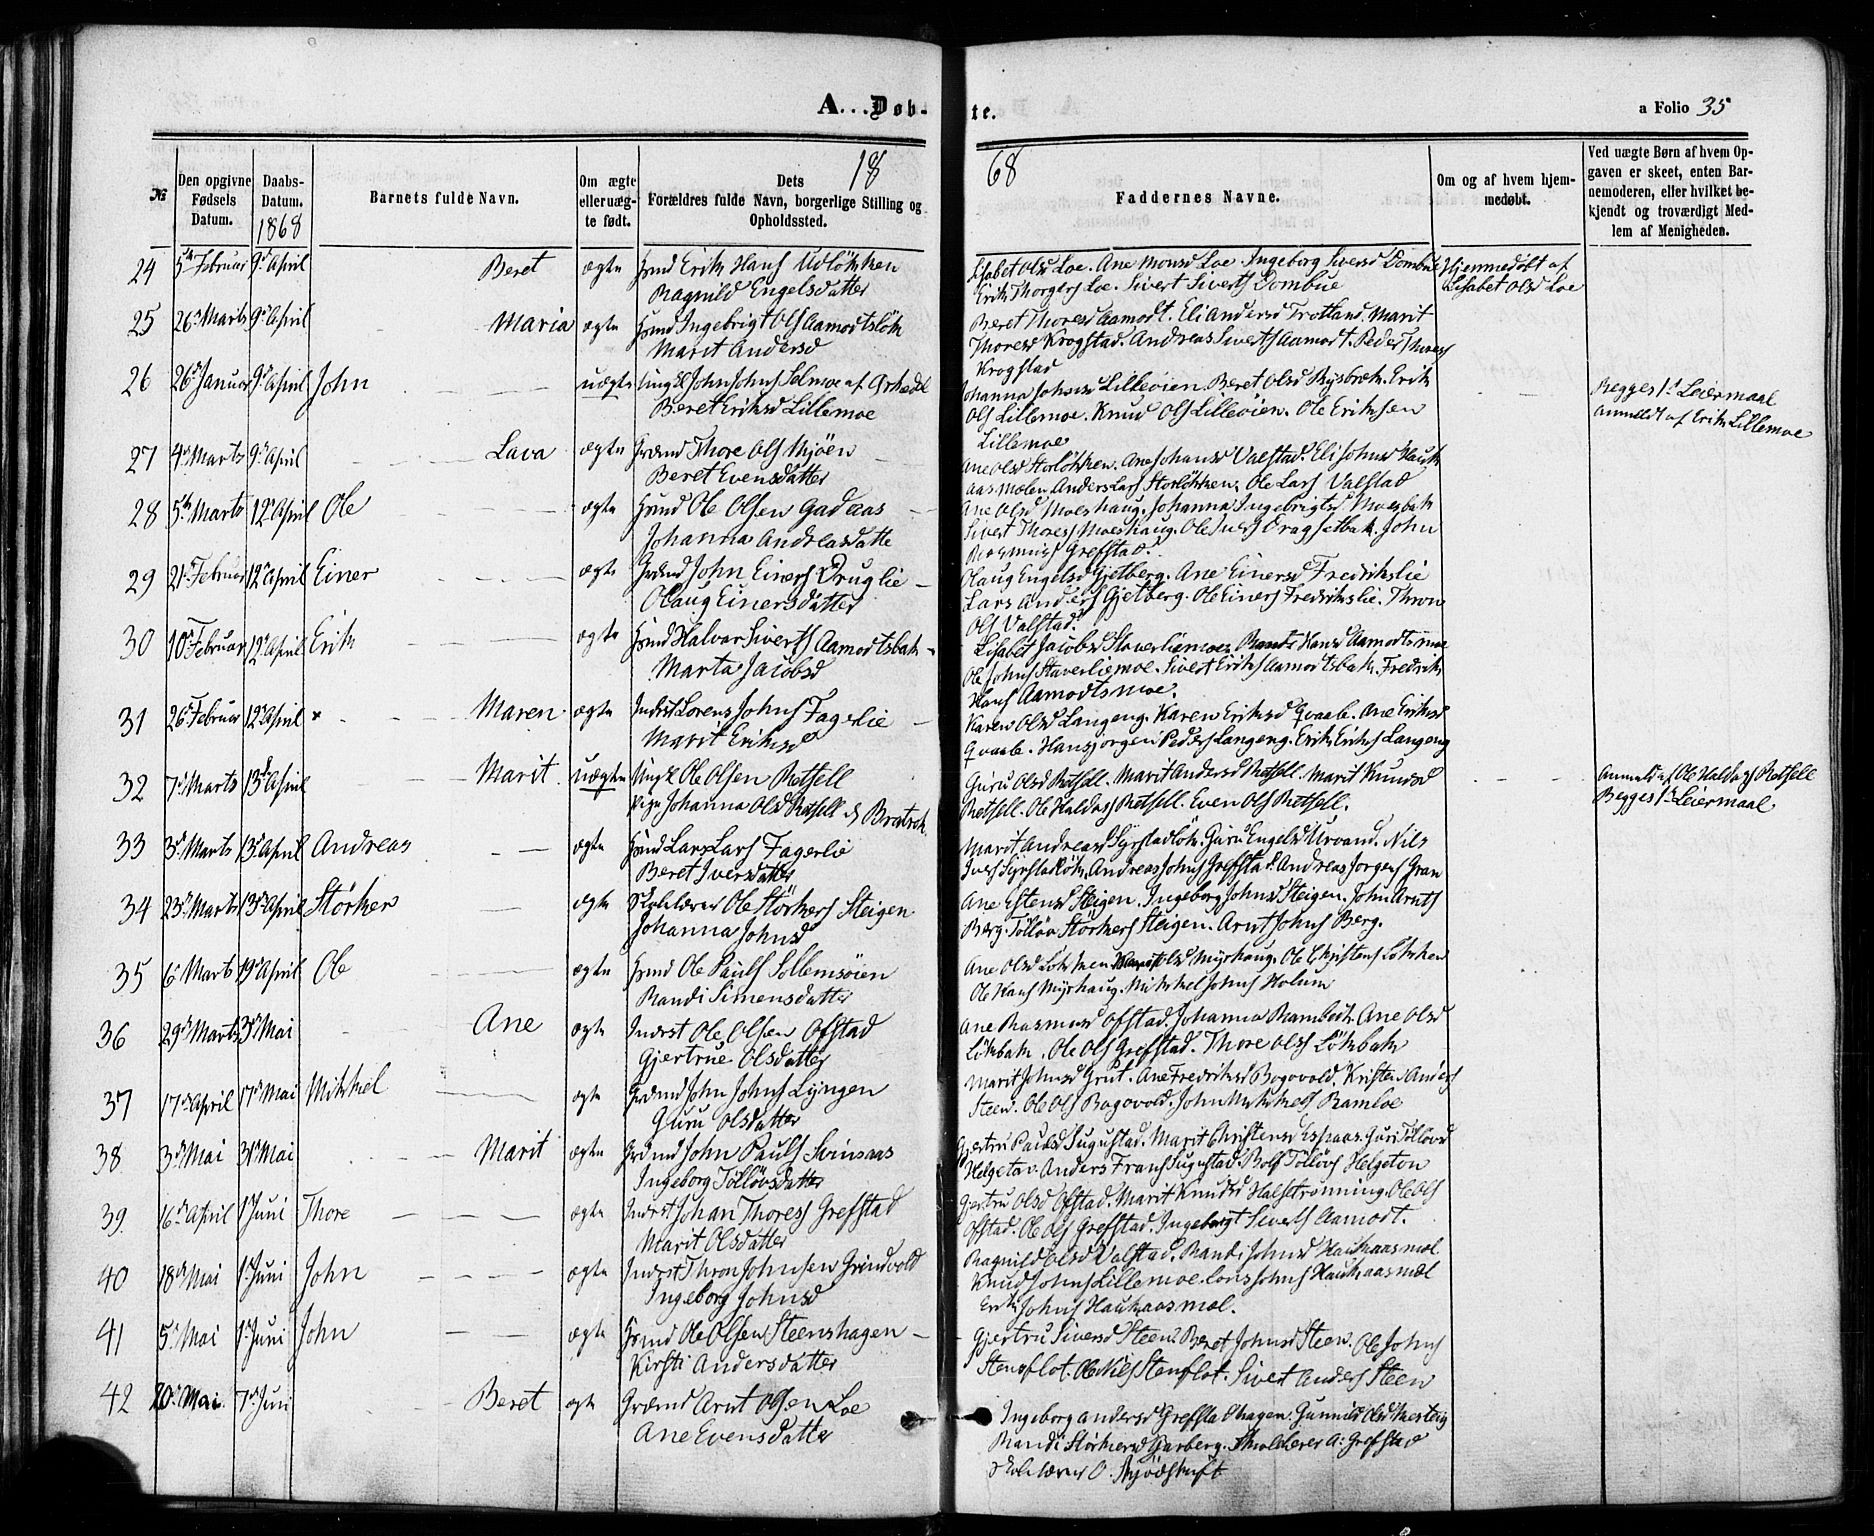 A... Døb-
te.
a Folio 35
18
68
№
Den opgivne Fødsels Datum.
Daabs-Datum. 1868
Barnets fulde Navn.
Om ægte eller uægte født.
Dets Forældres fulde Navn, borgerlige Stilling og Opholdssted.
Faddernes Navne.
Om og af hvem hjemmedøbt.
Ved uægte Børn af hvem Opgaven er skeet, enten Barnemoderen, eller hvilket bekjendt og troværdigt Medlem af Menigheden.
24 5te Februar 9d April Beret ægte Hmd Erik Hans Udløkken
Ragnild Engelsdatter
Lisabet Olsd Loe. Ane Monsd Loe. Ingeborg Siversd Dombue
Erik Thorgers Loe. Sivert Siverts Dombue
Hjemmedøbt af
Lisabet Olsd Loe
25 26d Marts 9d April Maria ægte Hmd Ingebrigt Ols Aamodtsløk
Marit Andersd
Beret Thoresd Aamodt. Eli Andersd Trotland. Marit
Thoresd Krogstad. Andreas Siverts Aamodt. Peder Thores
Krogstad
26 26d Januar 9d April John uægte Ungk John Johns Solmoe af Ørkedal
Beret Eriksd Lillemoe
Johanna Johnsd Lilleøien. Beret Olsd Rysbræk. Erik
Ols Lillemoe. Knud Ols Lilleøien. Ole Eriksen
Lillemoe
Begges 1d Leiermaal
anmeldt af Erik Lillemoe
27 4d Marts 9d April Lava ægte Grænd Thore Ols Mjøen
Beret Evensdatter
Ane Olsd Storløkken. Ane Johansd Valstad. Eli Johnsd Hauk
aasmælen Anders Lars Storløkken. Ole Lars Valstad
28 5te Marts 12d April Ole ægte Hmd Ole Olsen Gadaas
Johanna Andreasdatte
Ane Olsd Moeshaug. Johanna Ingebrigtsd Moesbak
Sivert Thores Moeshaug. Ole Ivers Dragsetbak. John
Grefstad.
29 21d Februar 12d April Einer ægte Grænd John Einers Druglie
Olaug Einersdatter
Olaug Engelsd Gjetberg. Ane Einersd Fredrikslie
Lars Anders Gjetberg. Ole Einers Fredrikslie. Thron
Ols Valstad.
30 10d Februar 12d April Erik ægte Hmd Halvar Siverts Aamodtsbak
Marta Jacobsd
Lisabet Jacobsd Staverliemoe. Randi Hansd Aamodtsmoe
Ole Johns Staverliemoe. Sivert Eriks Aamodtsbak. Fredrik
Hans Aamodtsmoe.
31 26d Februar 12d April Maren ægte Inderst Lorens Johns Fagerlie
Marit Eriksd
Karen Olsd Langeng. Karen Eriksd Qvaale. Ane Eriksd
Qvaale. Hans Jorgen Peders Langeng. Erik Eriks Langeng
32 7d Marts 13d April Marit uægte Ungk Ole Olsen Retsell
Pige Johanna Olsd Retsell
Guru Olsd Retsell. Marit Andersd Retsell. Marit Knudsd
Retsell. Ole Haldos Retsell. Even Ols Retsell.
Anmeldt af Ole Haldos Retsell
Begges 1st Leiermaal
33 3d Marts 13d April Andreas ægte Hmd Lars Lars Fagerlie
Beret Iversdatter
Marit Andreasd Syrstadløk. Guru Engelsd Urvand. Nils
Ivers Syrstadløk. Andreas Johns Grefstad. Andreas Jorgens Gran
34 23d Marts 13d April Størker ægte Skolelærer Ole Størkers Steigen
Johanna Johnsd
Ane Estensd Steigen. Ingeborg Johnsd Steigen. John Arnts
Berg. Tølløv Størkers Steigen. Arnt Johns Berg.
35 6d Marts 19d April Ole ægte Hmd Ole Pauls Sollemsøien
Randi Simensdatter
Ane Olsd Løkken Marit Olsd Myrhaug. Ole Christens Løkken
Ole Hans Myrhaug. Mikkel Johns Holum
36 29d Marts 3d Mai Ane ægte Inderst Ole Olsen Ofstad
Gjertrue Olsdatter
Ane Rasmusd Ofstad. Johanna Rambech. Ane Olsd
Løkbak. Ole Ols Grefstad. Thore Ols Løkbak
37 17d April 17d Mai Mikkel ægte Grænd John Johns Lyngen
Guru Olsdatter
Marit Johnsd Grut. Ane Fredriksd Bogovold. Kristen Anders
Steen. Ole Ols Bogovold. John Mikkels Ramloe
38 3d Mai 31d Mai Marit ægte Grænd John Pauls Svinsaas
Ingeborg Tølløvsdatter
Gjertru Paulsd Sugustad. Marit Christensd Espaas. Guri Tølløvsd
Helgeton. Anders Frans Sugustad. Rolf Tølløvs Helgeton
39 16d April 1d Juni Thore ægte Inderst Johan Thores Grefstad
Marit Olsdatter
Gjertru Olsd Ofstad. Marit Knudsd Halsetrønning. Ole Ols
Ofstad. Ole Ols Grefstad. Ingebrigt Siverts Aamodt.
40 18d Mai 1d Juni John ægte Inderst Thron Johnsen Grindvold
Ingeborg Johnsd
Ragnild Olsd Valstad. Randi Johnsd Haukaasmæl
Knud Johns Lillemoe. Lars Johns Haukaasmæl
Erik Johns Haukaasmæl.
41 5d Mai 1d Juni John ægte Hmd Ole Olsen Steenshagen
Kirsti Andersdatter
Gjertru Siversd Steen. Beret Johnsd Steen. Ole Johns
Stenflot. Ole Nils Stenflot. Sivert Anders Steen
42 20d Mai 7d Juni Beret ægte Grænd Arnt Olsen Loe
Ane Evensdatter
Ingeborg Andersd Grefstadhagen. Gunild Olsd
Randi Størkersd Garberg. Skolelærer A. Grefstad
Skolelærer O. Skjødskift